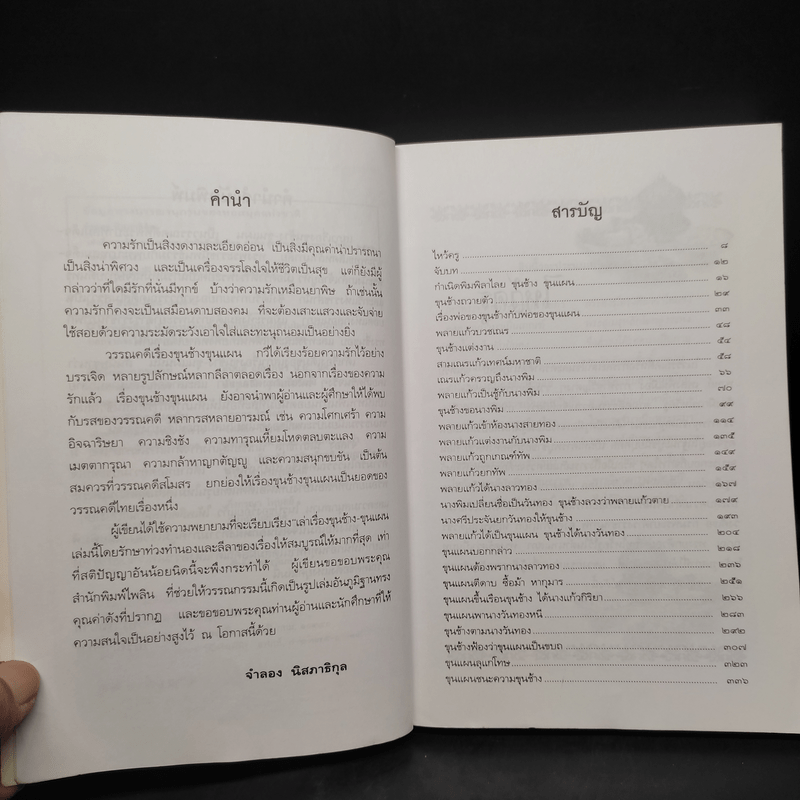 คำนำ
ความรักเป็นสิ่งงดงามละเอียดอ่อน เป็นสิ่งมีคุณค่าน่าปรารถนา
เป็นสิ่งน่าพิศวง และเป็นเครื่องจรรโลงใจให้ชีวิตเป็นสุข แต่ก็ยังมีผู้
กล่าวว่าที่ใดมีรักที่นั่นมีทุกข์ บ้างว่าความรักเหมือนยาพิษ ถ้าเช่นนั้น
ความรักก็คงจะเป็นเสมือนดาบสองคม ที่จะต้องเสาะแสวงและจับจ่าย
ใช้สอยด้วยความระมัดระวังเอาใจใส่และทะนุถนอมเป็นอย่างยิ่ง
วรรณคดีเรื่องขุนช้างขุนแผน กวีได้เรียงร้อยความรักไว้อย่าง
บรรเจิด หลายรูปลักษณ์หลากลีลาตลอดเรื่อง นอกจากเรื่องของความ
รักแล้ว เรื่องขุนช้างขุนแผน ยังอาจนำพาผู้อ่านและผู้ศึกษาให้ได้พบ
กับรสของวรรณคดี หลากรสหลายอารมณ์ เช่น ความโศกเศร้า ความ
อิจฉาริษยา ความชิงชัง ความทารุณเหี้ยมโหดตลบตะแลง ความ
เมตตากรุณา ความกล้าหาญกตัญญู และความสนุกขบขัน เป็นต้น
สมควรที่วรรณคดีสโมสร ยกย่องให้เรื่องขุนช้างขุนแผนเป็นยอดของ
วรรณคดีไทยเรื่องหนึ่ง
ผู้เขียนได้ใช้ความพยายามที่จะเรียบเรียงเล่าเรื่องขุนช้าง-ขุนแผน
เล่มนี้โดยรักษาท่วงทำนองและลีลาของเรื่องให้สมบูรณ์ให้มากที่สุด เท่า
ที่สติปัญญาอันน้อยนิดนี้จะพึงกระทำได้ ผู้เขียนขอขอบพระคุณ
สำนักพิมพ์ไพลิน ที่ช่วยให้วรรณกรรมนี้เกิดเป็นรูปเล่มอันภูมิฐานทรง
คุณค่าดังที่ปรากฏ และขอขอบพระคุณท่านผู้อ่านและนักศึกษาที่ให้
ความสนใจเป็นอย่างสูงไว้ ณ โอกาสนี้ด้วย
จำลอง นิสภาธิกุล
สารบัญ
ไหว้ครู ๘
จับบท ๑๒
กำเนิดพิมพิลาไลย ขุนช้าง ขุนแผน ๑๖
ขุนช้างถวายตัว ๒๙
เรื่องพ่อของขุนช้างกับพ่อของขุนแผน ๓๓
พลายแก้วบวชเณร ๔๘
ขุนช้างแต่งงาน ๕๔
สามเณรแก้วเทศน์มหาชาติ ๕๘
เณรแก้วครวญถึงนางพิม ๖๖
พลายแก้วเป็นชู้กับนางพิม ๗๐
ขุนช้างขอนางพิม ๙๙
พลายแก้วเข้าห้องนางสายทอง ๑๑๔
พลายแก้วแต่งงานกับนางพิม ๑๓๕
พลายแก้วถูกเกณฑ์ทัพ ๑๔๙
พลายแก้วยกทัพ ๑๕๙
พลายแก้วได้นางลาวทอง ๑๖๗
นางพิมเปลี่ยนชื่อเป็นวันทอง ขุนช้างลวงว่าพลายแก้วตาย ๑๗๙
นางศรีประจันยกวันทองให้ขุนช้าง ๑๙๓
พลายแก้วได้เป็นขุนแผน ขุนช้างได้นางวันทอง ๒๐๔
ขุนแผนบอกกล่าว ๒๑๘
ขุนแผนต้องพรากนางลาวทอง ๒๓๖
ขุนแผนตีดาบ ซื้อม้า หากุมาร ๒๕๑
ขุนแผนขึ้นเรือนขุนช้าง ได้นางแก้วกิริยา ๒๖๖
ขุนแผนพานางวันทองหนี ๒๘๓
ขุนช้างตามนางวันทอง ๒๙๒
ขุนช้างฟ้องว่าขุนแผนเป็นขบถ ๓๐๗
ขุนแผนลุแก่โทษ ๓๒๓
ขุนแผนชนะความขุนช้าง ๓๓๖